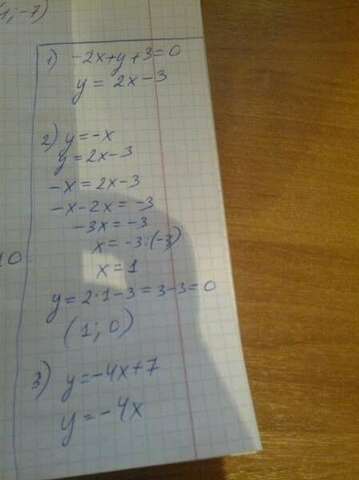 ; -7)
1) -2x+y+3=0
y = 2x-3
2) y=-x
y=2x-3
-x = 2x-3
-x-2x = -3
-3x=-3
x= -3:(-3)
x=1
y=2·1-3=3-3=0
(1; 0)
3) y=-4x+7
y=-4x